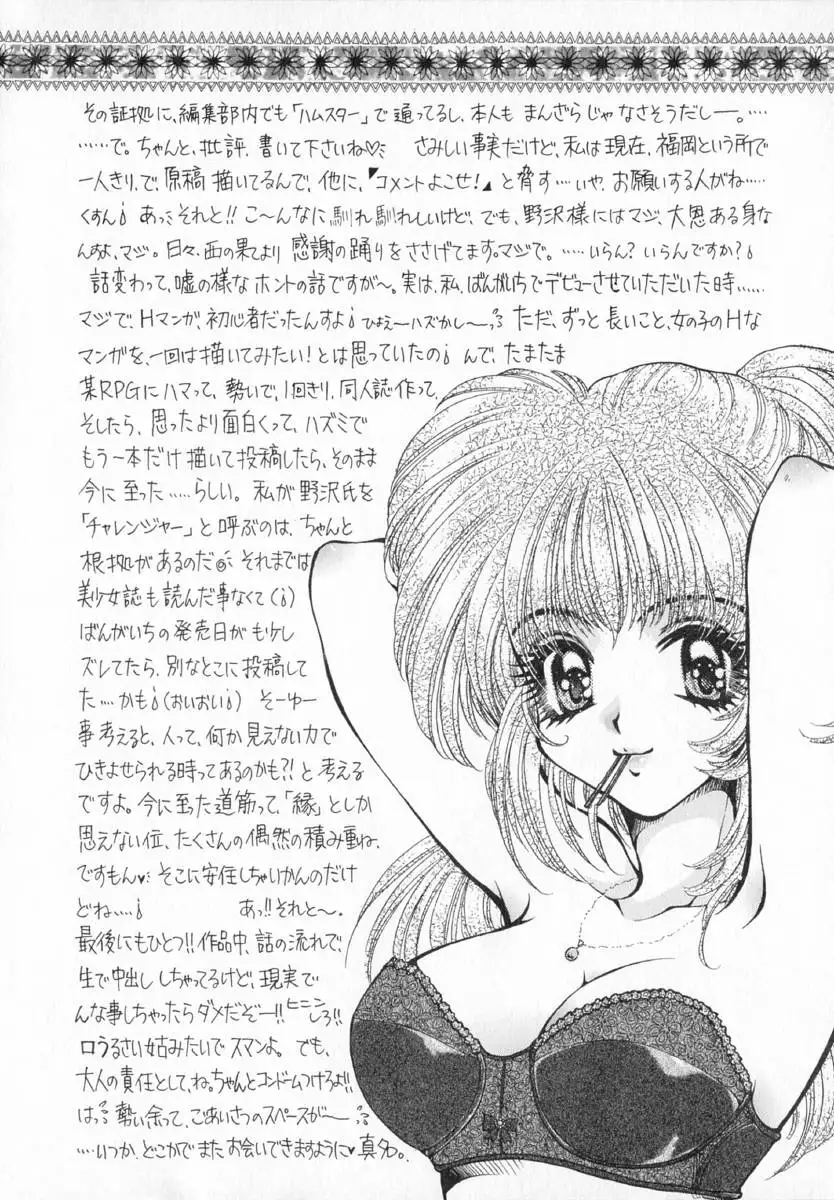 その証拠に、編集部内でも「ハムスター」で通ってるし、本人も まんざらじゃ なさそうだしー。……
……で。ちゃんと、批評、書いて下さいね♡ さみしい事実だけど、私は現在、福岡という所で
一人きり、で、原稿描いてるんで、他に、『コメントよこせ!』と脅す……いや、お願いする人がね……
くすん あっ それと!! こ〜んなに馴れ馴れしいけど、でも、野沢様にはマジ、大恩ある身な
んすよ、マジ。日々、西の果てより 感謝の踊りをささげてます。マジで。……いらん?いらんですか?
話変わって、嘘の様なホントの話ですが〜。実は、私、ばんがいちでデビューさせていただいた時……
マジで、Hマンガ、初心者だったんすよ ひょえーハズかし〜 ただ、ずっと長いこと、女の子のHな
マンガを、一回は描いてみたい!とは思っていたの んで、たまたま
某RPGにハマって、勢いで、1回きり、同人誌作って、
そしたら、思ったより面白くって、ハズミで
もう一本だけ描いて投稿したら、そのまま
今に至った……らしい。私が野沢氏を
「チャレンジャー」と呼ぶのは、ちゃんと
根拠があるのだ それまでは
美少女誌も読んだ事なくて(
ばんがいちの発売日が もし
ズレてたら、別なとこに投稿して
た……かも (おいおい ) そーゆー
事考えると、人って、何か見えない力で
ひきよせられる時ってあるのかも?!と考える
ですよ。今に至った道筋って、「縁」としか
思えない位、たくさんの偶然の積み重ね。
ですもん♥ そこに安住しちゃいかんのだけ
どね…… あっ!!それと〜。
最後にもひとつ!!作品中、話の流れで、
生で中出し しちゃってるけど、現実で
んな事しちゃったらダメだぞー!! ヒニンしろ!!
口うるさい姑みたいでスマンよ。でも、
大人の責任として、ね。ちゃんとコンドームつけろよ!!
はっ 勢い余って、ごあいさつのスペースが〜
……いつか、どこかでまたお会いできますように♥ 真名。